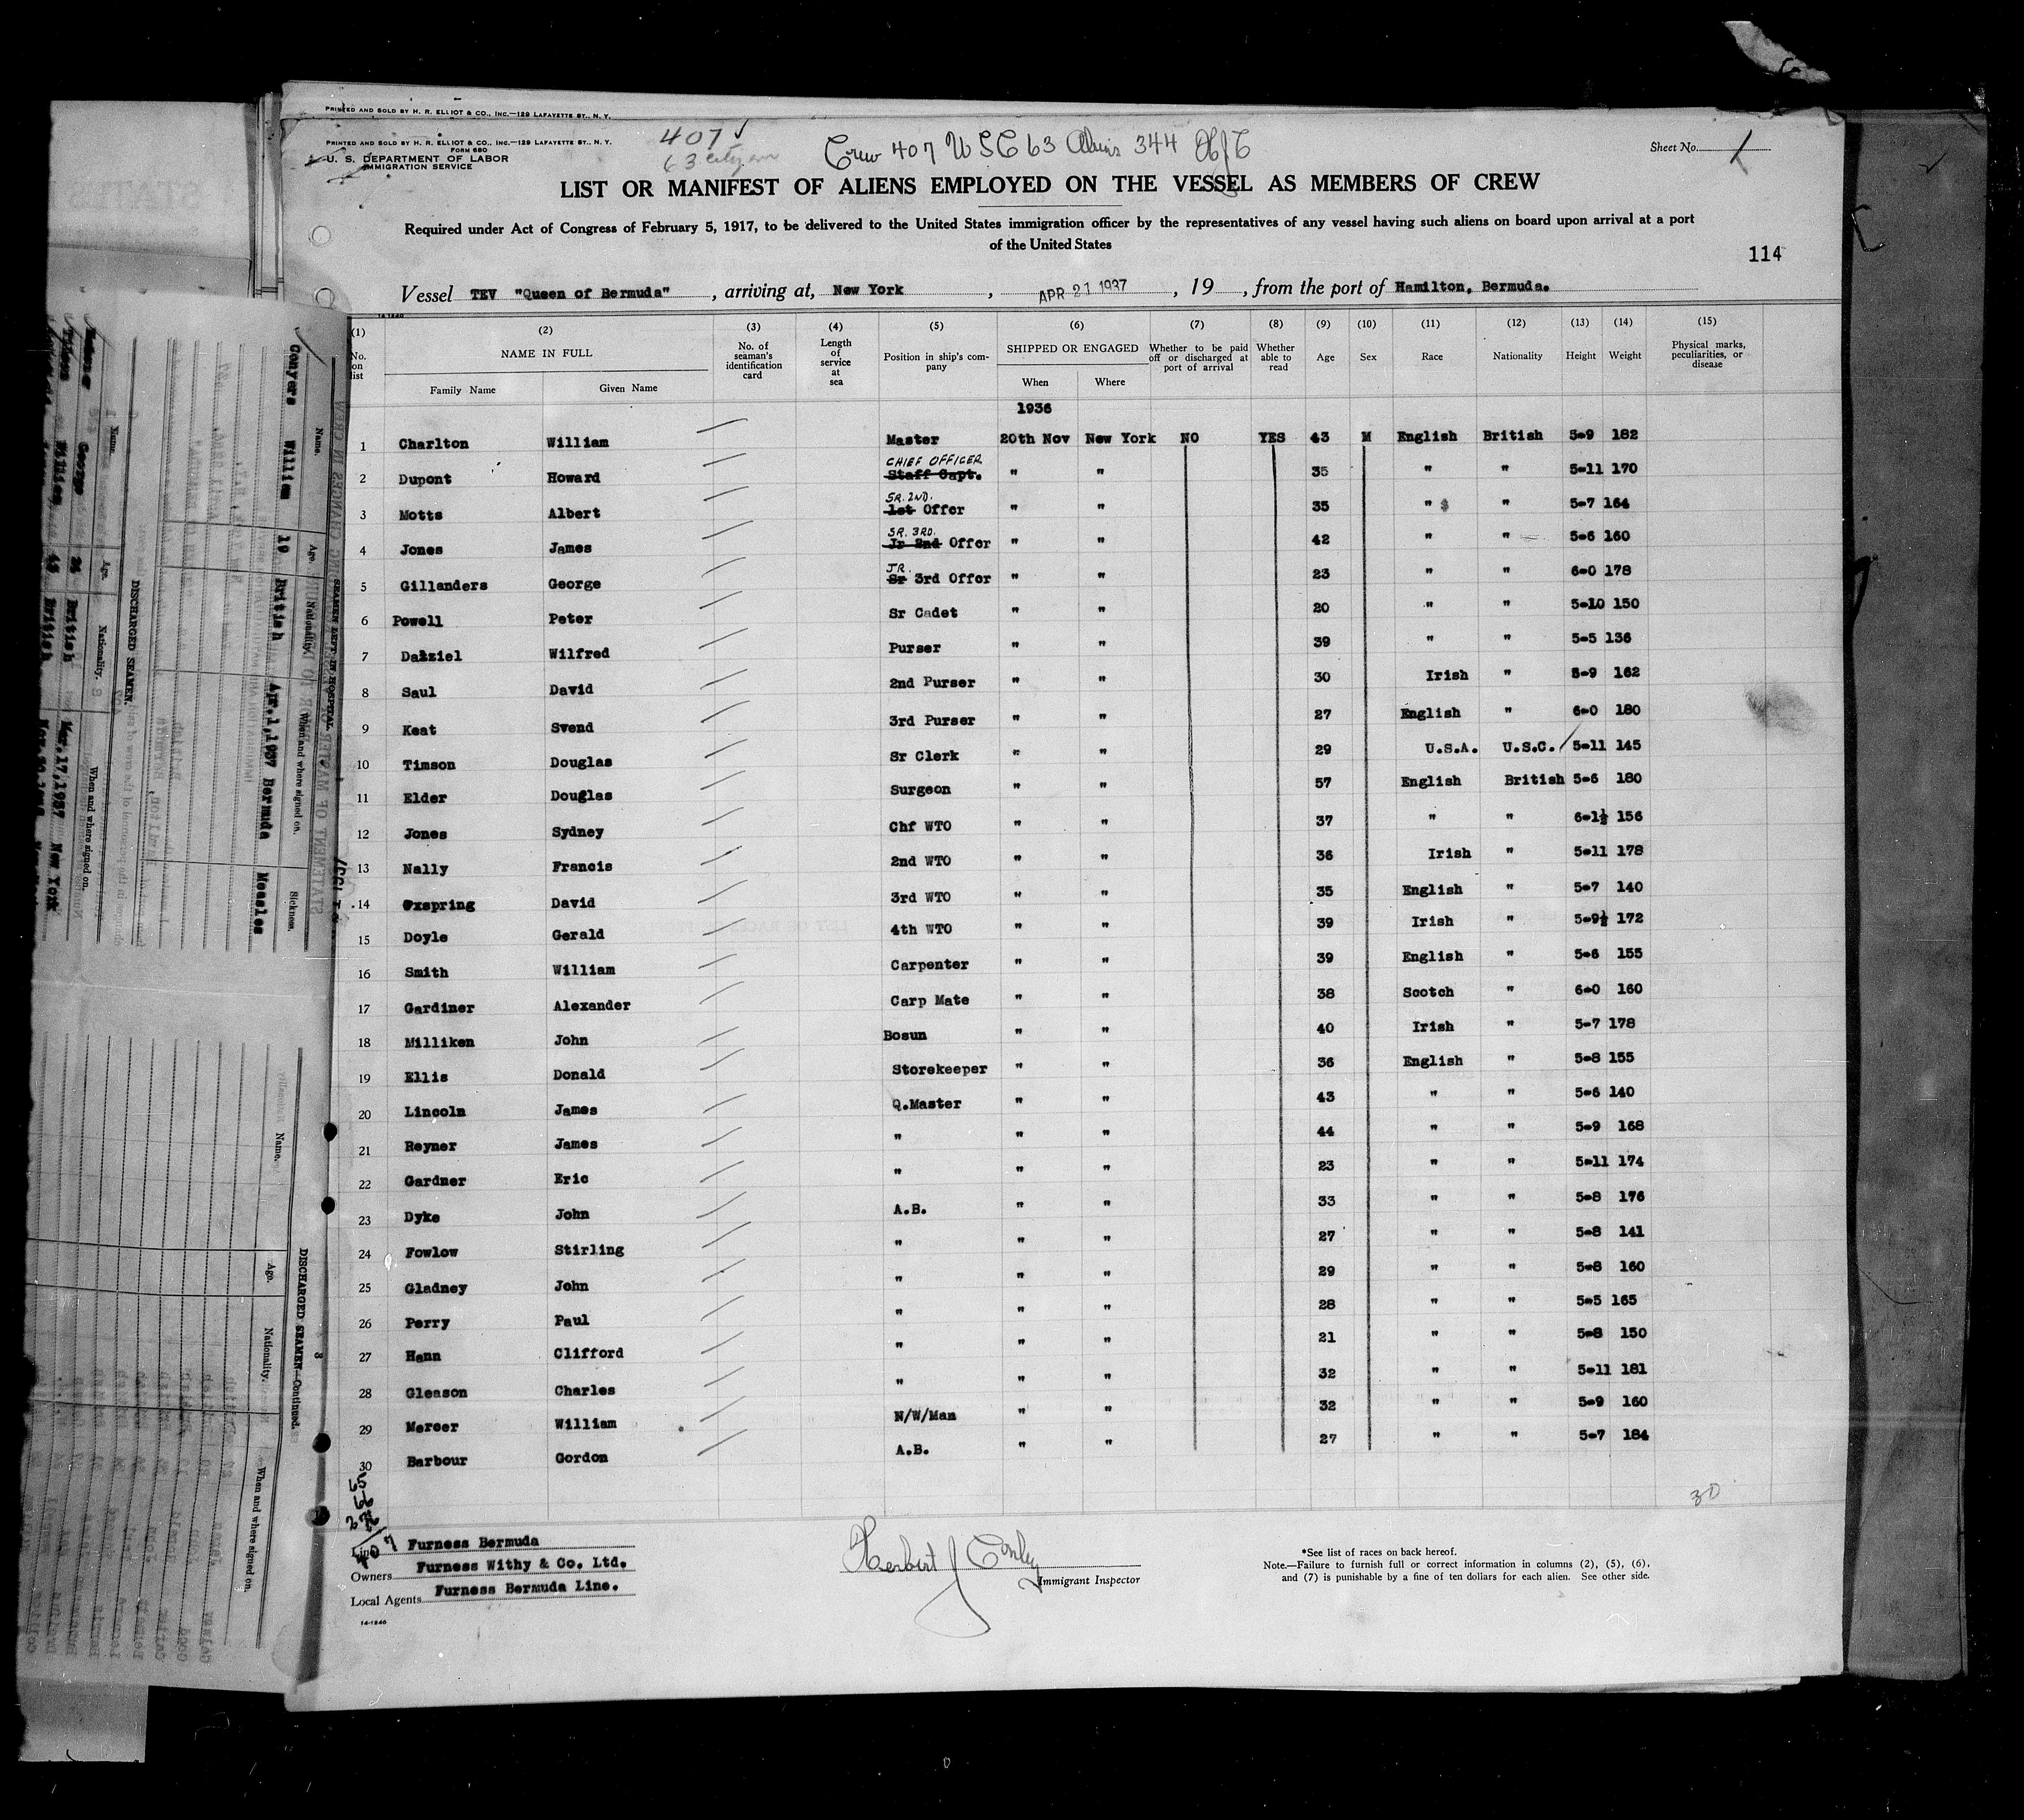 PRINTED AND SOLD BY H. R. ELLIOT & CO., INC.—129 LAFAYETTE ST., N. Y.
PRINTED AND SOLD BY H. R. ELLIOT & CO., INC.—129 LAFAYETTE ST., N. Y.
FORM 680
U. S. DEPARTMENT OF LABOR
IMMIGRATION SERVICE
407
63 citizen
Crew 407 USC 63 Aliens 344 HJC
Sheet No. 1
LIST OR MANIFEST OF ALIENS EMPLOYED ON THE VESSEL AS MEMBERS OF CREW
Required under Act of Congress of February 5, 1917, to be delivered to the United States immigration officer by the representatives of any vessel having such aliens on board upon arrival at a port
of the United States
114
Vessel TEV "Queen of Bermuda", arriving at, New York, APR 21 1937, 19, from the port of Hamilton, Bermuda.
14-1240
(1) (2) (3) (4) (5) (6) (7) (8) (9) (10) (11) (12) (13) (14) (15)
No. on list NAME IN FULL Family Name Given Name No. of seaman's identification card Length of service at sea Position in ship's company SHIPPED OR ENGAGED When Where Whether to be paid off or discharged at port of arrival Whether able to read Age Sex Race Nationality Height Weight Physical marks, peculiarities, or disease
1936
1 Charlton William Master 20th Nov New York NO YES 43 M English British 5-9 182
2 Dupont Howard CHIEF OFFICER Staff Capt. " " 35 " " 5-11 170
3 Motts Albert SR. 2ND. 1st Offer " " 35 " " 5-7 164
4 Jones James SR. 3RD. Jr 2nd Offer " " 42 " " 5-6 160
5 Gillanders George JR. Sr 3rd Offer " " 23 " " 6-0 178
6 Powell Peter Sr Cadet " " 20 " " 5-10 150
7 Dalziel Wilfred Purser " " 39 " " 5-5 136
8 Saul David 2nd Purser " " 30 Irish " 5-9 162
9 Keat Svend 3rd Purser " " 27 English " 6-0 180
10 Timson Douglas Sr Clerk " " 29 U.S.A. U.S.C. 5-11 145
11 Elder Douglas Surgeon " " 57 English British 5-6 180
12 Jones Sydney Chf WTO " " 37 " " 6-1½ 156
13 Nally Francis 2nd WTO " " 36 Irish " 5-11 178
14 Oxspring David 3rd WTO " " 35 English " 5-7 140
15 Doyle Gerald 4th WTO " " 39 Irish " 5-9½ 172
16 Smith William Carpenter " " 39 English " 5-6 155
17 Gardiner Alexander Carp Mate " " 38 Scotch " 6-0 160
18 Milliken John Bosun " " 40 Irish " 5-7 178
19 Ellis Donald Storekeeper " " 36 English " 5-8 155
20 Lincoln James Q.Master " " 43 " " 5-6 140
21 Reyner James " " " 44 " " 5-9 168
22 Gardner Eric " " " 23 " " 5-11 174
23 Dyke John A.B. " " 33 " " 5-8 176
24 Fowlow Stirling " " " 27 " " 5-8 141
25 Gladney John " " " 29 " " 5-8 160
26 Perry Paul " " " 28 " " 5-5 165
27 Hann Clifford " " " 21 " " 5-8 150
28 Gleason Charles " " " 32 " " 5-11 181
29 Mercer William N/W/Man " " 32 " " 5-9 160
30 Barbour Gordon A.B. " " 27 " " 5-7 184
30
65
66
276
407
Line Furness Bermuda
Owners Furness Withy & Co. Ltd.
Local Agents Furness Bermuda Line.
14-1240
Herbert J Conley
Immigrant Inspector
*See list of races on back hereof.
Note.—Failure to furnish full or correct information in columns (2), (5), (6),
and (7) is punishable by a fine of ten dollars for each alien. See other side.
SEAMEN LEFT IN HOSPITAL
Name. Age. Nationality. When and where signed on. Sickness.
Conyers William 19 British Apr.1,1937 Bermuda Measles
DISCHARGED SEAMEN.
Name. Age. Nationality. When and where signed on.
George British Mar.17,1937 New York
William British
DISCHARGED SEAMEN—Continued.
Name. Age. Nationality. When and where signed on.